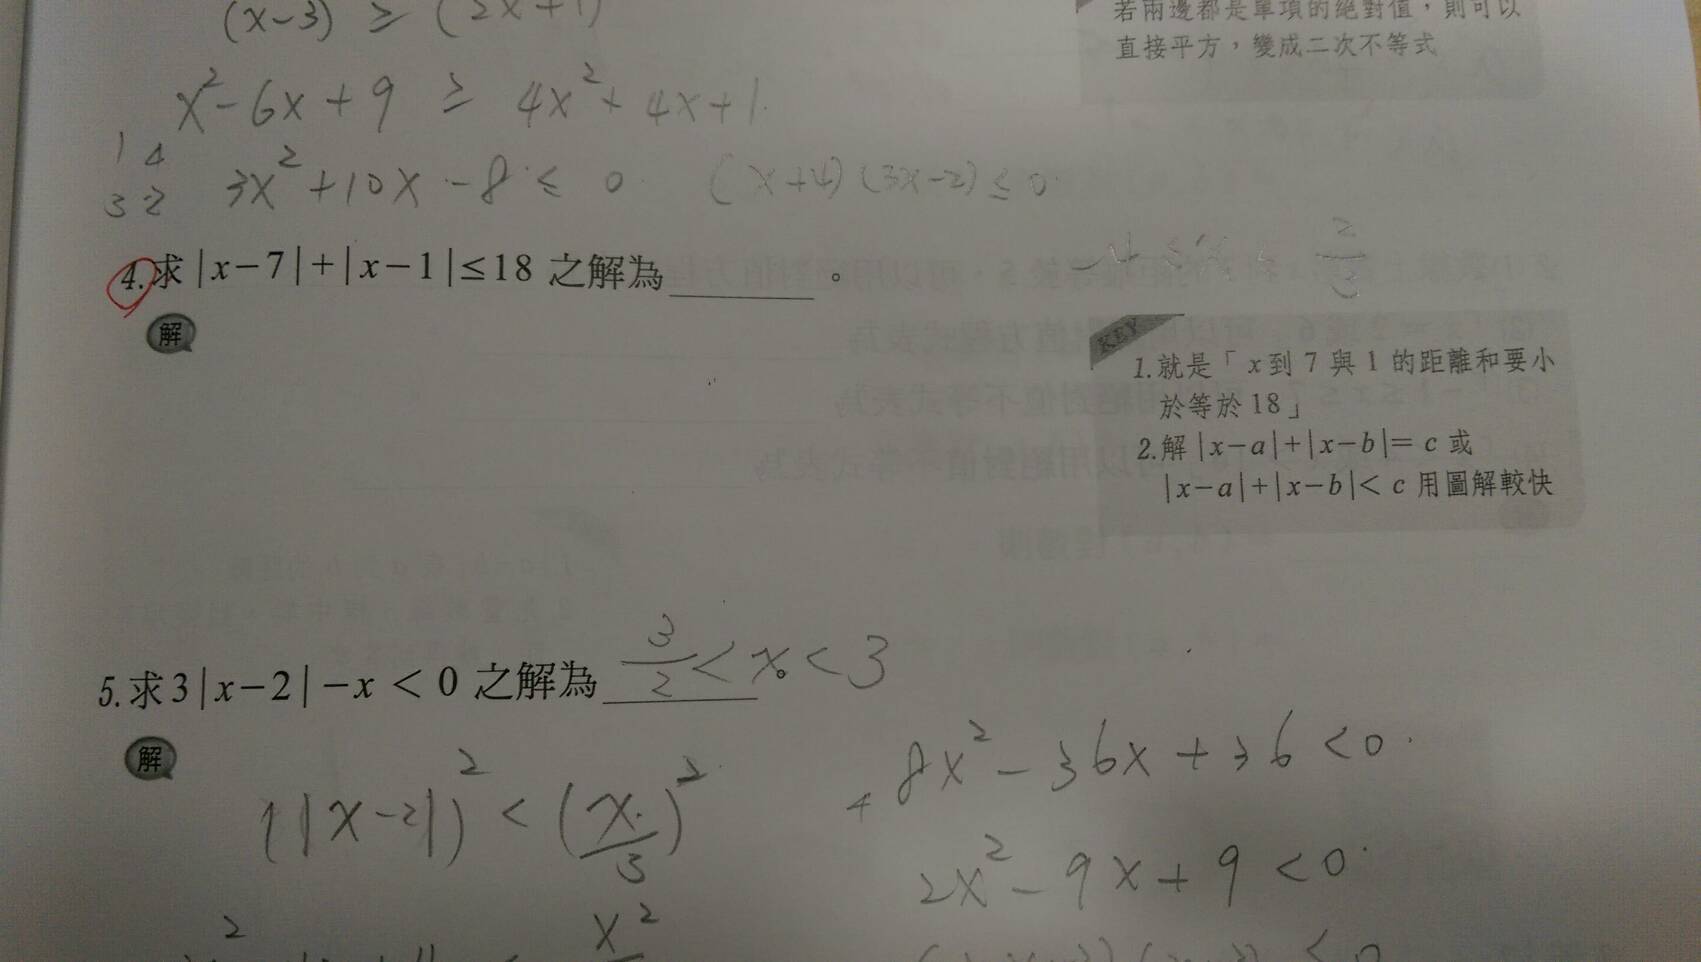 (x-3) ≥ (2x+1)
若兩邊都是單項的絕對值,則可以
直接平方,變成二次不等式
x²-6x+9 ≥ 4x²+4x+1
1 4
3 -2
3x²+10x-8 ≤ 0 (x+4)(3x-2) ≤ 0
-4 ≤ x ≤ 2/3
4.求|x-7|+|x-1|≤18 之解為______。
解
KEY
1.就是「x到7與1的距離和要小
於等於18」
2.解|x-a|+|x-b|=c或
|x-a|+|x-b|<c用圖解較快
5.求3|x-2|-x<0 之解為 3/2 < x < 3 。
解
(|x-2|)² < (x/3)²
8x²-36x+36<0
4
2x²-9x+9<0